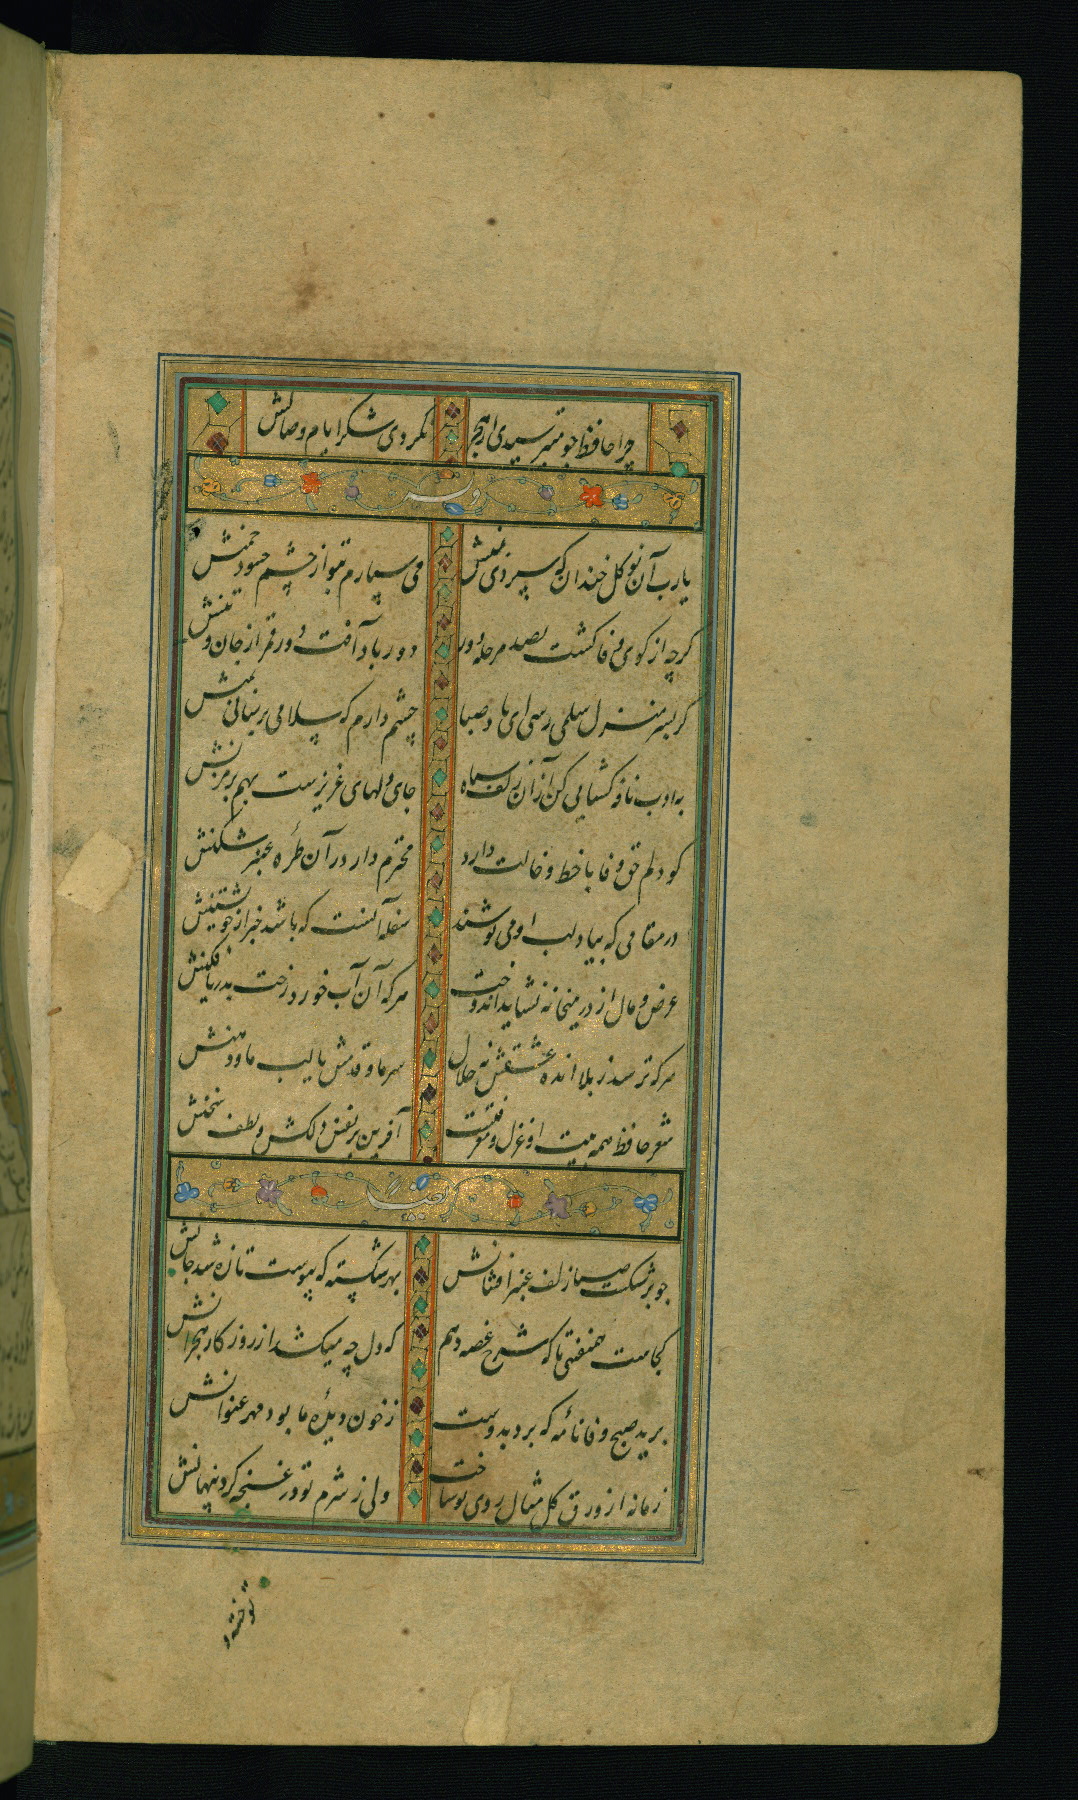 چرا حافظ چو میترسیدی از هجر نکردی شکر ایام وصالش
وله
یارب آن نوگل خندان که سپردی بمنش می سپارم بتو از چشم حسود چمنش
گرچه از کوی وفا گشت بصد مرحله دور دور باد آفت دور قمر از جان و تنش
گر بسر منزل سلمی رسی ای باد صبا چشم دارم که سلامی برسانی بمنش
به ادب نافه گشایی کن از آن زلف سیاه جای دلهای عزیزست بهم بر مزنش
گو دلم حق وفا با خط و خالت دارد محترم دار در آن طره عنبر شکنش
در مقامی که بیاد لب او می نوشند سفله آنست که باشد خبر از خویشتنش
عرض و مال از در میخانه نشاید اندوخت هرکه آن آب خورد رخت بدریا فکنش
هرکه ترسد ز بلا انده عشقش نه حلال سر ما و قدمش یا لب ما و دهنش
شعر حافظ همه بیت الغزل معرفتست آفرین بر نفس دلکش و لطف سخنش
ایضا
چو برشکست صبا زلف عنبر افشانش بهر شکسته که پیوست تازه شد جانش
کجاست همنفسی تا که شرح غصه دهم که دل چه میکشد از روزگار هجرانش
برید صبح وفا نامه که برد بدوست ز خون دیده ما بود مهر عنوانش
زمانه از ورق گل مثال روی تو ساخت ولی ز شرم تو در غنچه کرد پنهانش
تو خفته